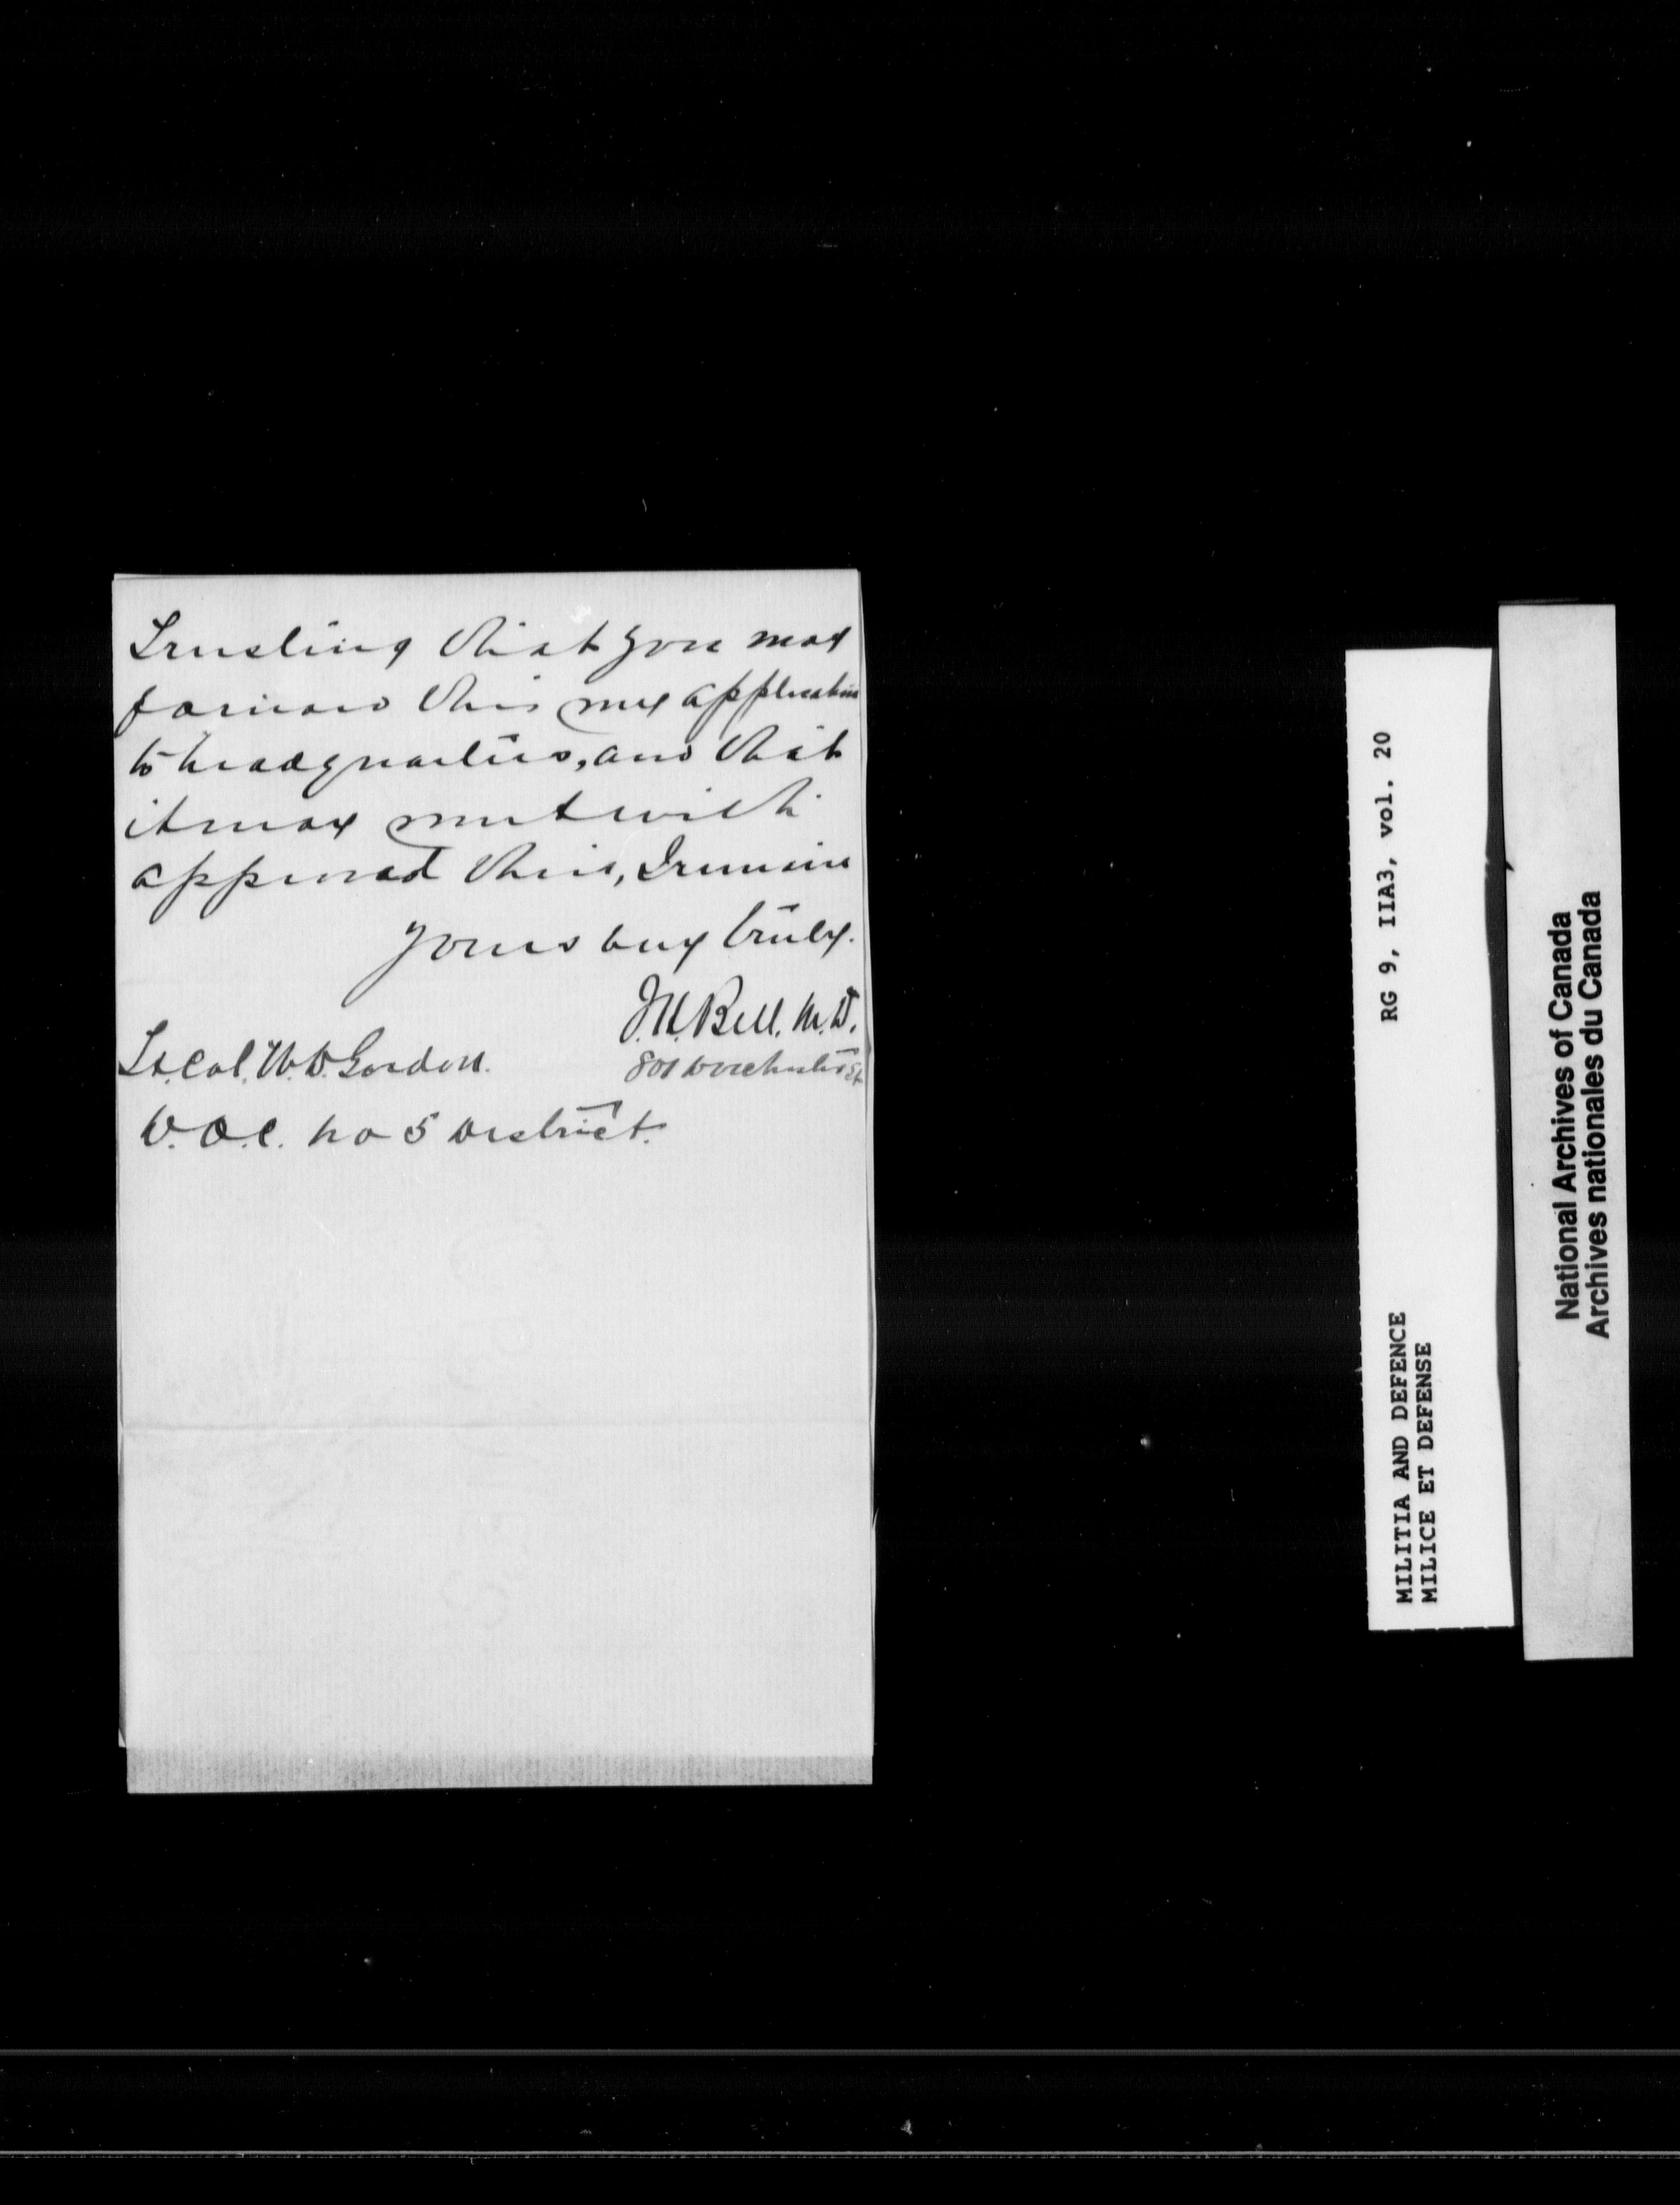 Trusting that you may
forward this my application
to headquarters, and that
it may meet with
approval there, I remain
Yours very truly.
J.H. Bell. M.D.
801 Dorchester St
Lt. Col. W.D. Gordon.
D.O.C. No 5 District.
RG 9, IIA3, vol. 20
MILITIA AND DEFENCE
MILICE ET DEFENSE
National Archives of Canada
Archives nationales du Canada